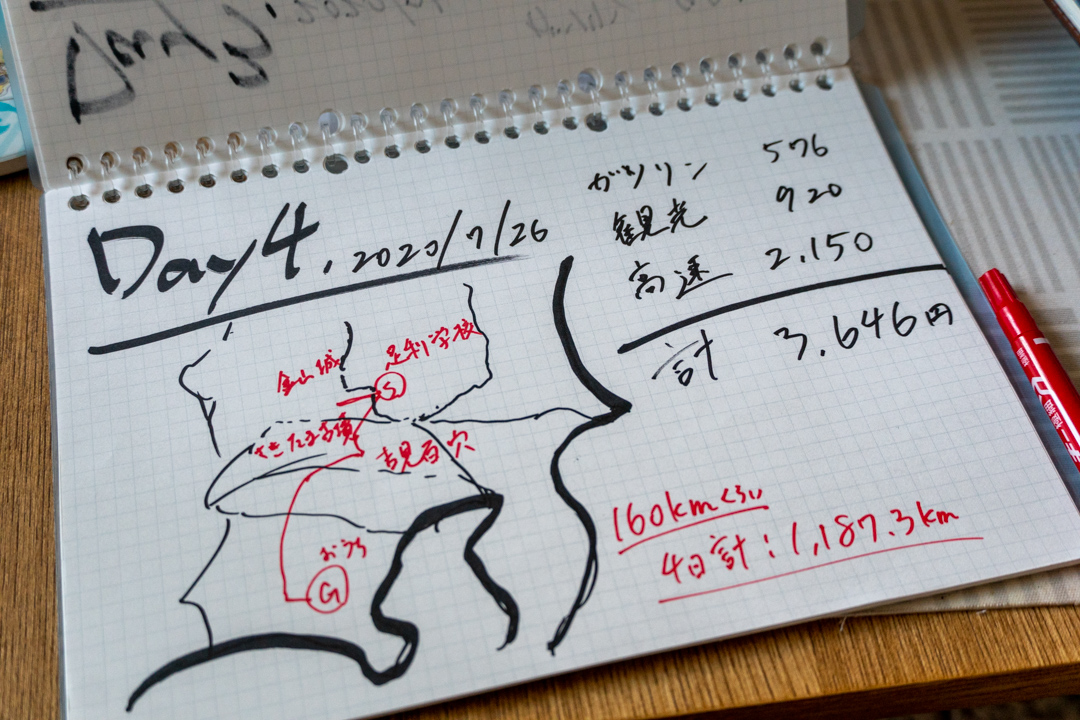 Day 3.
Day 4. 2020/7/26
ガソリン 576
観光 920
高速 2,150
計 3,646円
足利学校
金山城
S
さきたま古墳
吉見百穴
おうち
G
160kmくらい
4日計:1,187.3km